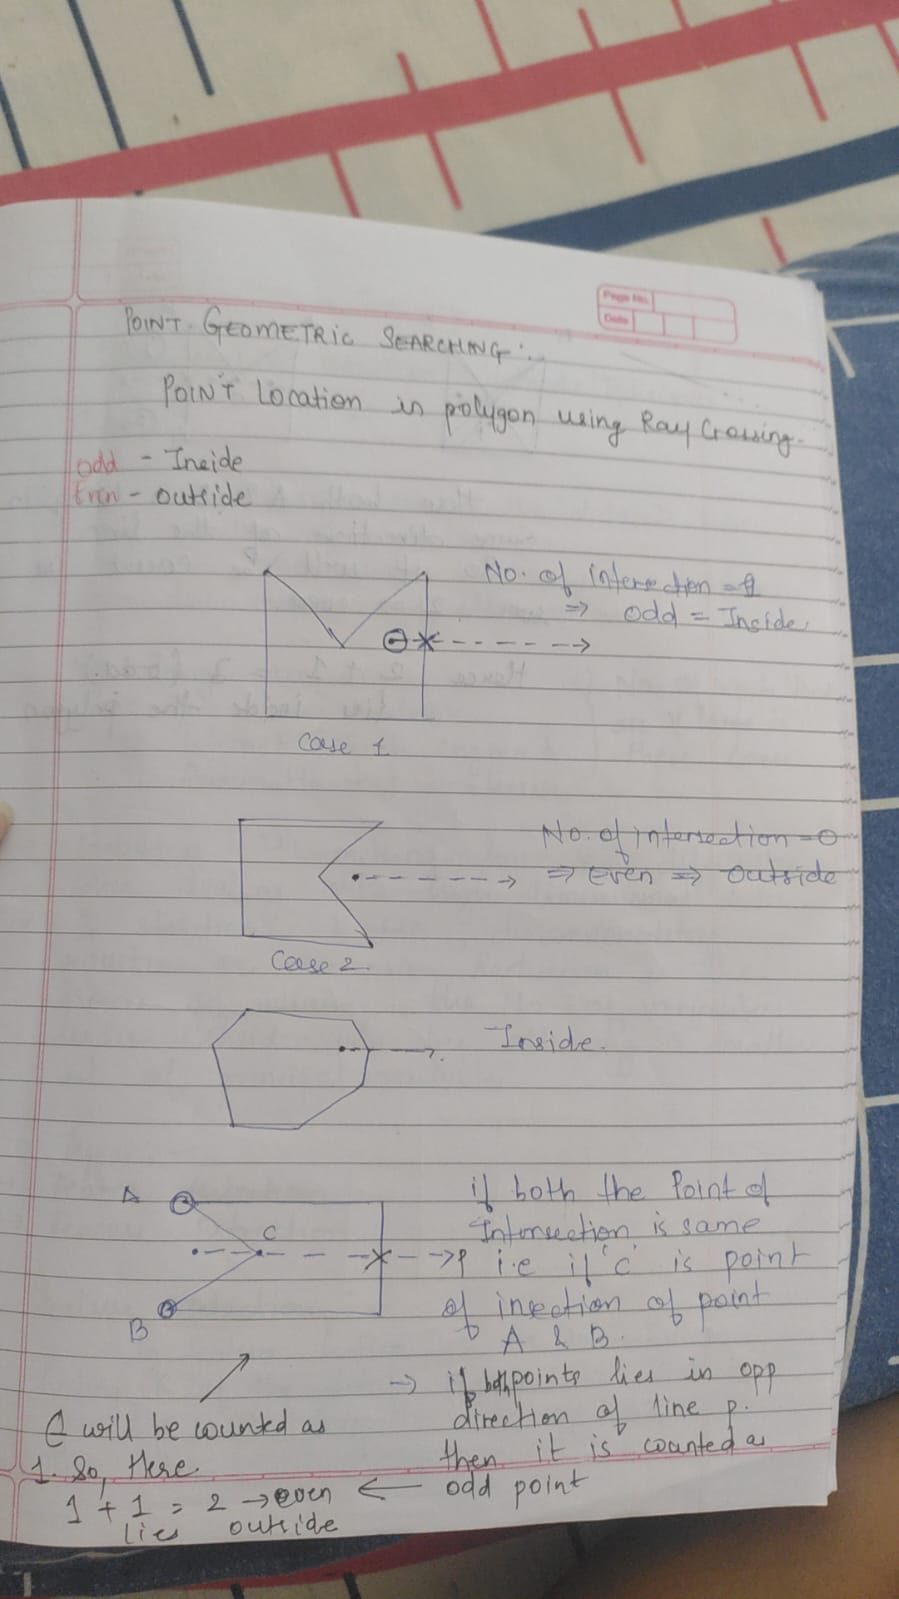 Page No.
Date
POINT GEOMETRIC SEARCHING :.
POINT Location in polygon using Ray Crossing.
odd - Inside
Even - outside
No. of intersection = 1
⇒ odd = Inside
Case 1
No. of intersection = 0
⇒ even ⇒ outside
Case 2
Inside.
A
if both the Point of
C
Intersection is same
P i.e if 'c' is point
of insection of point
B
A & B.
→ if both points lies in opp
direction of line p.
then it is counted as
odd point
C will be counted as
1. So, Here
1 + 1 = 2 → even ←
lies outside